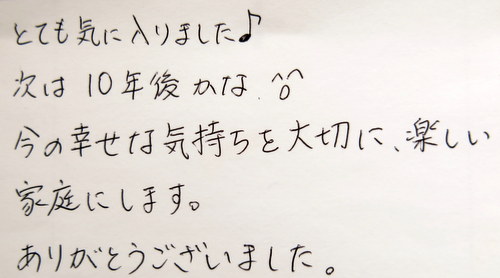 とても気に入りました♪
次は10年後かな ^o^
今の幸せな気持ちを大切に、楽しい
家庭にします。
ありがとうございました。